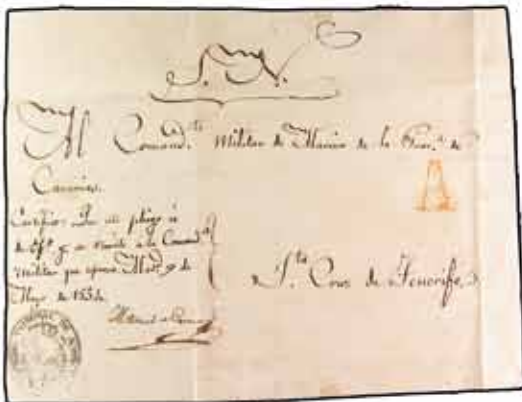 S. N.
Al Comand.te Militar de Marina de la Prov.a de
Canarias.
A
Certifico: Que este pliego es
de Of.o y se remite a la Comand.a
Militar que expresa. Mad. 9 de
Mayo de 1834
S.ta Cruz de Tenerife